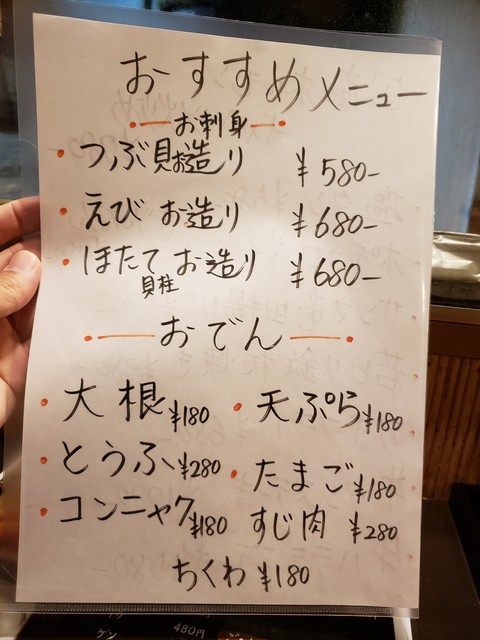 おすすめメニュー
お刺身
・つぶ貝お造り ¥580-
・えび お造り ¥680-
・ほたて お造り ¥680-
貝柱
おでん
・大根 ¥180 ・天ぷら ¥180
・とうふ ¥280 ・たまご ¥180
・コンニャク ¥180 すじ肉 ¥280
ちくわ ¥180
480円